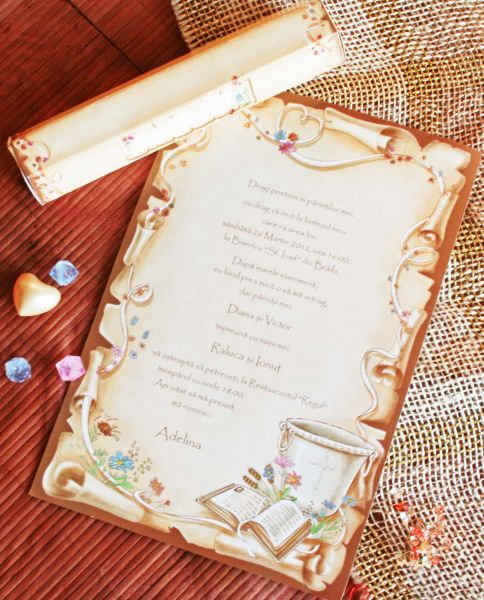 Dragi prieteni ai părinților mei,
cu drag vă invit la botezul meu
care va avea loc,
sâmbătă 26 Martie 2012, ora 16:00,
la Biserica "Sf. Iosif" din Brăila.
După marele eveniment,
eu fiind prea mică o să mă retrag,
dar părinții mei
Diana și Victor
împreună cu nașii mei
Raluca și Ionuț
vă așteaptă să petreceți, la Restaurantul "Regal"
începând cu orele 18:00.
Am uitat să mă prezint,
mă numesc:
Adelina